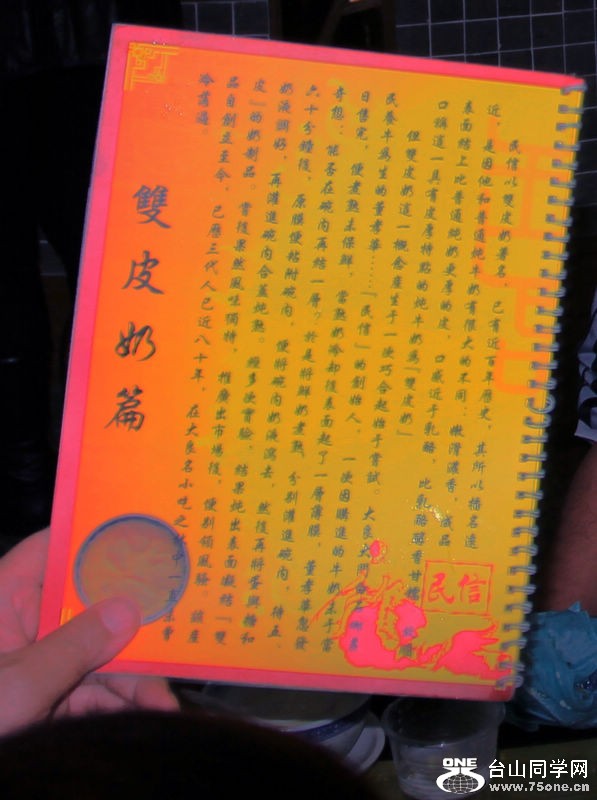 民信以雙皮奶著名，已有近百年歷史，其所以播名遠
近，是因他和普通炖牛奶有很大的不同：嫩滑濃香，成品
表面結上比普通炖奶更厚的皮，口感近于乳酪，比乳酪醇香甘糯，故順
口稱這一具有皮厚特點的炖牛奶為『雙皮奶』
但雙皮奶這一概念產生于一次巧合起始于嘗試。大良大門
民養牛為生的董孝華……『民信』的創始人，一次因購進的牛奶未于當
日售完，便煮熟來保鮮，當熟奶冷却後表面起了一層薄膜，董孝華忽發
奇想：能否在碗内再結一層？於是將鮮奶煮熟，分別灌進碗内，待五、
六十分鐘後，原膜便粘附碗内，便將碗内奶液瀉去，然後再將蛋與糖和
奶液調好，再灌進碗内合蓋炖熟。經多次實驗，結果炖出表面凝結『雙
皮』的奶制品。嘗後果然風味獨特，推廣出市場後，便別領風騷。該產
品自創立至今，已歷三代人已近八十年，在大良名小吃之中一直未曾
冷落過。
雙皮奶篇
民信
ONE
台山同学网
www.75one.cn